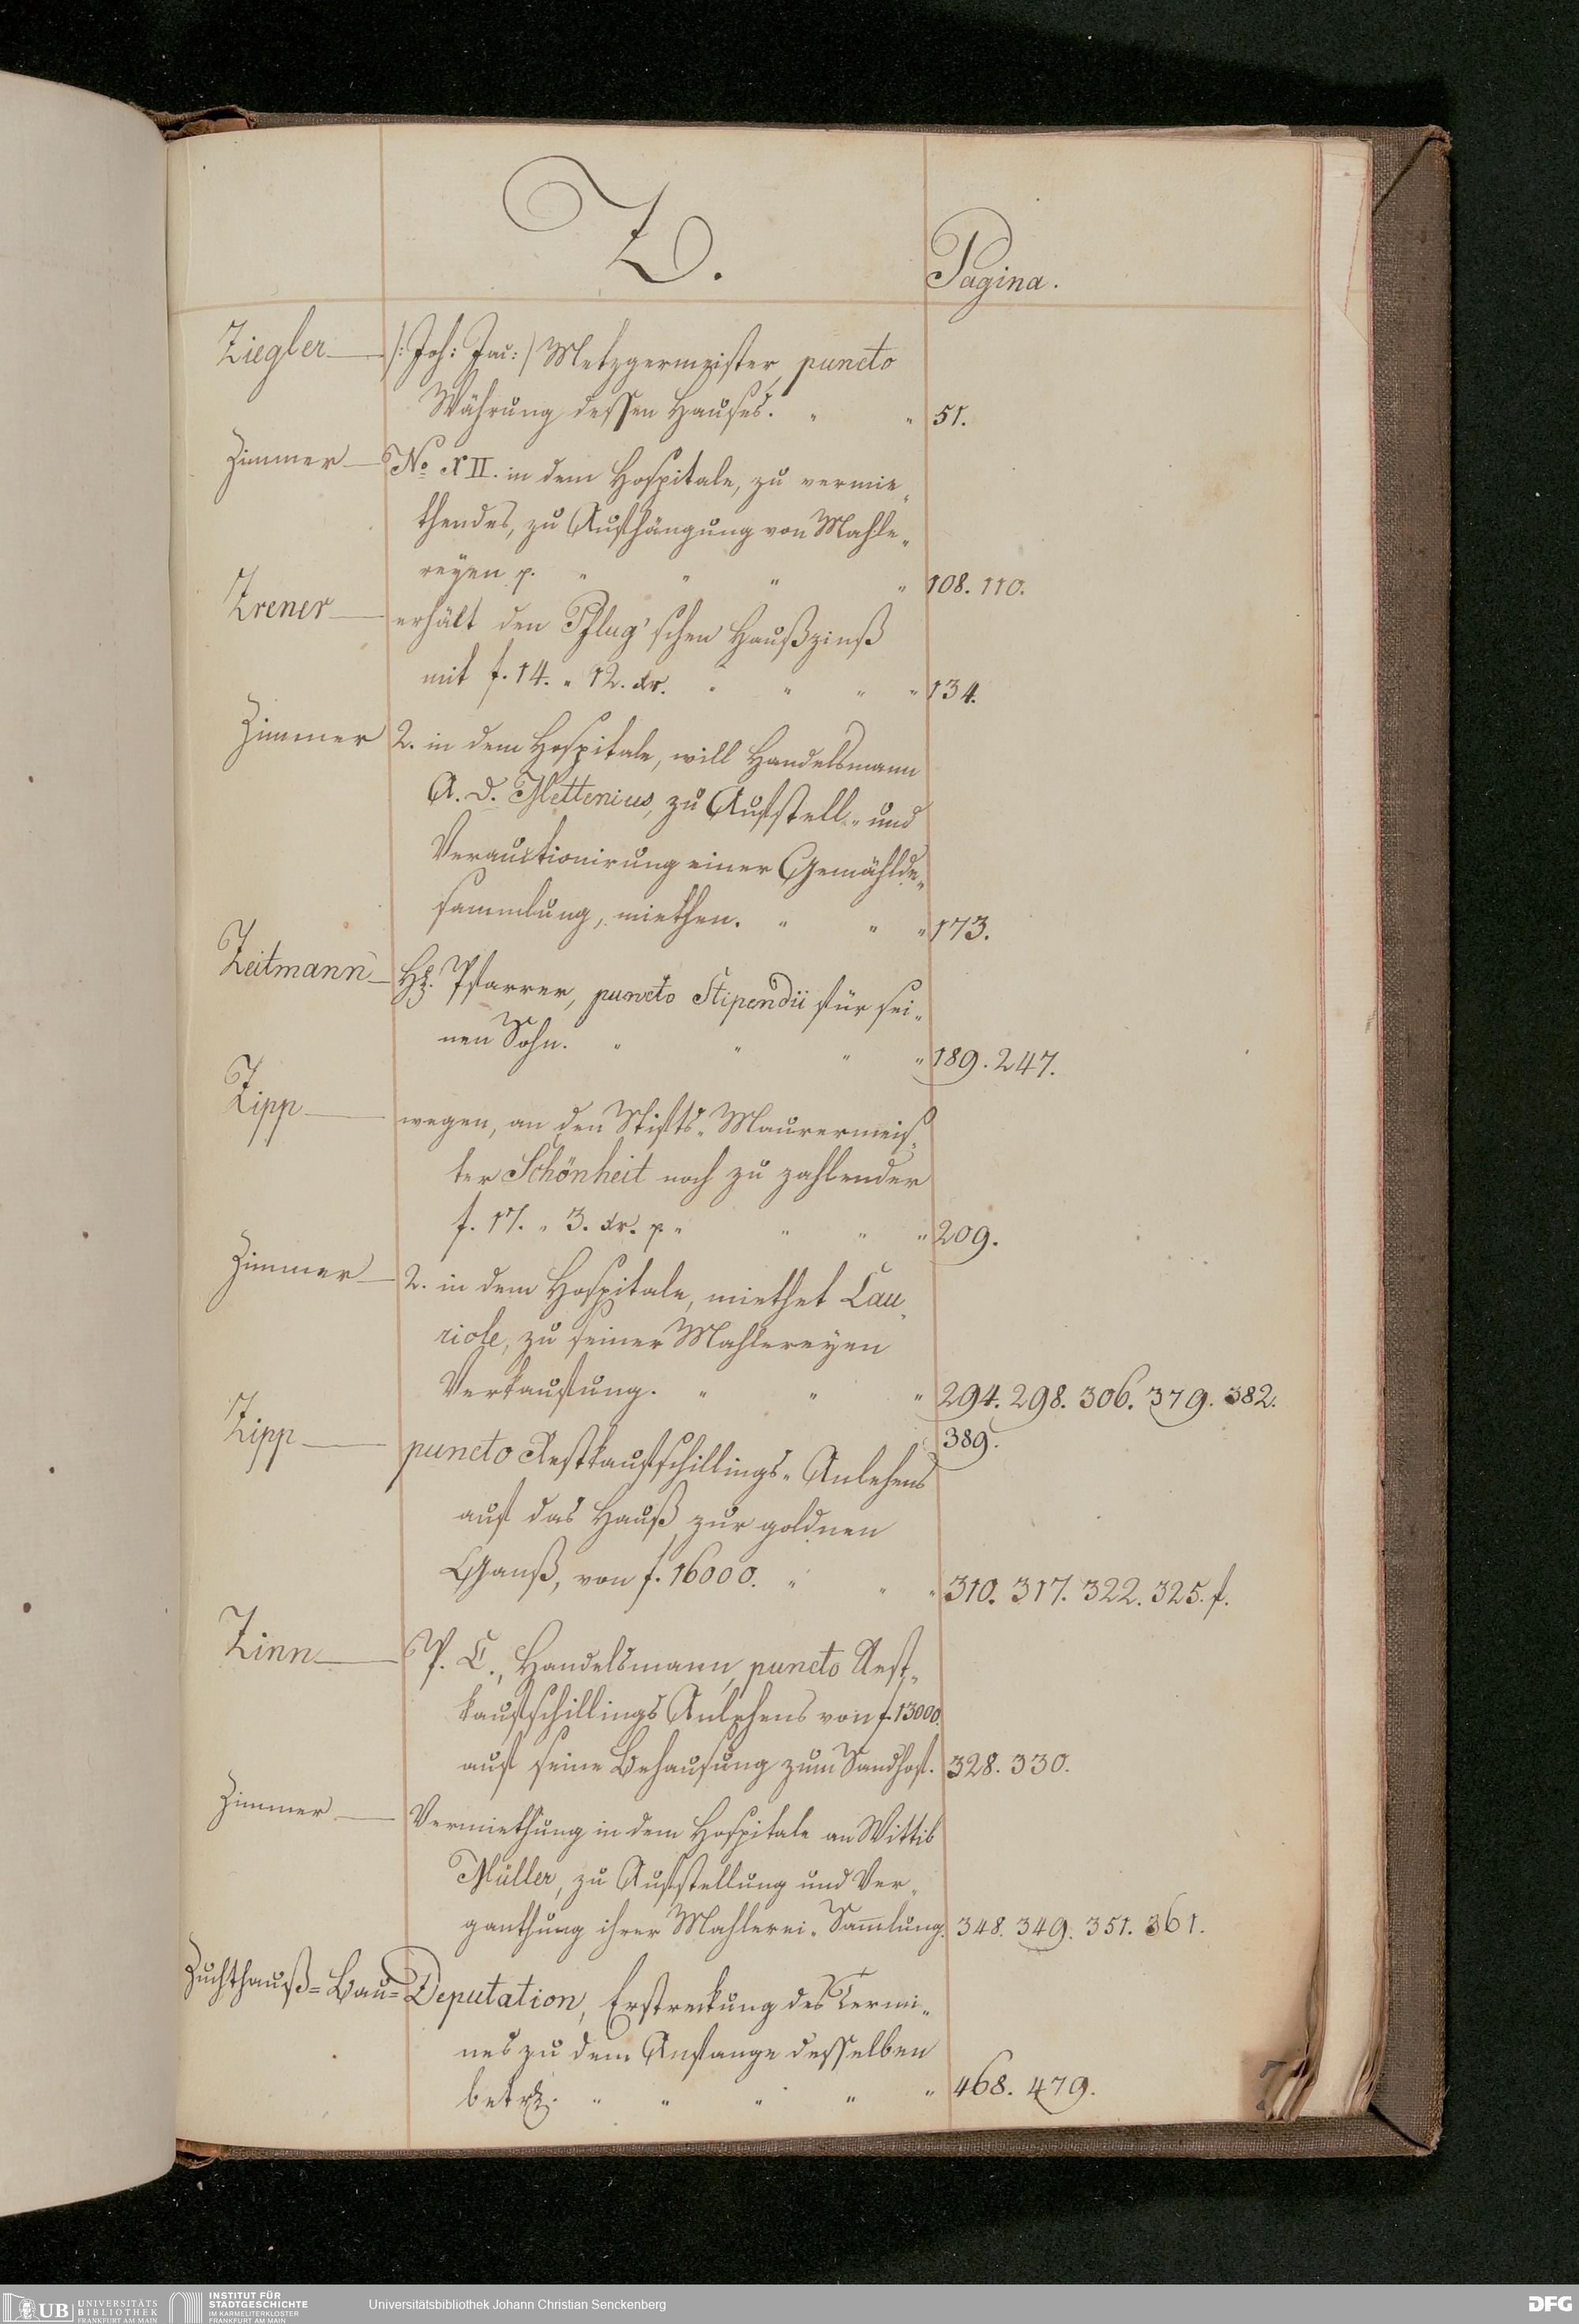 Z.
Pagina.
Ziegler — /: Joh: Jac: / Metzgermeister, puncto
Währung dessen Hauses. " " 51.
Zimmer — No XII. in dem Hospitale, zu vermie„
thendes, zu Aufhängung von Mahle„
reyen p. " " " " 108. 110.
Zrener — erhält den Pflug'schen Haußzinß
mit f. 14. " 12. xr. " " " " 134.
Zimmer 2. in dem Hospitale, will Handelsmann
A. D. Mettenius, zu Aufstell- und
Verauctionirung einer Gemählde„
sammlung, miethen. " " " 173.
Zeitmann — H. Pfarrer, puncto Stipendii für sei„
nen Sohn. " " " " 189. 247.
Zipp — wegen, an den Stifts„ Maurermeis„
ter Schönheit noch zu zahlender
f. 17. " 3. xr. p. " " " " 209.
Zimmer — 2. in dem Hospitale, miethet Cau„
riole, zu seiner Mahlereyen
Verkaufung. " " " 294. 298. 306. 379. 382.
389.
Zipp — puncto Restkaufschillings„ Anlehens
auf das Hauß zur goldnen
Ganß, von f. 16000. " " " 310. 317. 322. 325. f.
Zinn — P. C., Handelsmann, puncto Rest„
kaufschillings Anlehens von f. 13000.
auf seine Behausung zum Sandhof. 328. 330.
Zimmer — Vermiethung in dem Hospitale an Wittib
Müller, zu Aufstellung und Ver„
ganthung ihrer Mahlerei„ Sam̅lung. 348. 349. 351. 361.
Zuchthauß= Bau= Deputation, Erstreckung des Termi„
nes zu dem Anfange desselben
betr. " " " " " 468. 479.
UB UNIVERSITÄTS
BIBLIOTHEK
FRANKFURT AM MAIN
INSTITUT FÜR
STADTGESCHICHTE
IM KARMELITERKLOSTER
FRANKFURT AM MAIN
Universitätsbibliothek Johann Christian Senckenberg
DFG